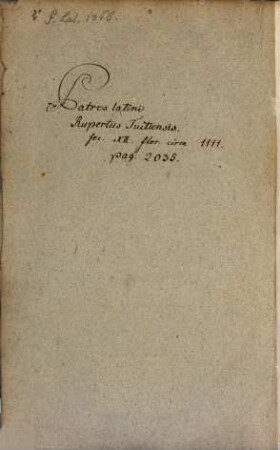 2° P. Lat. 1368.
Patres latini
Rupertus Tuitiensis.
sec. XII. flor. circa 1111.
pag. 2035.